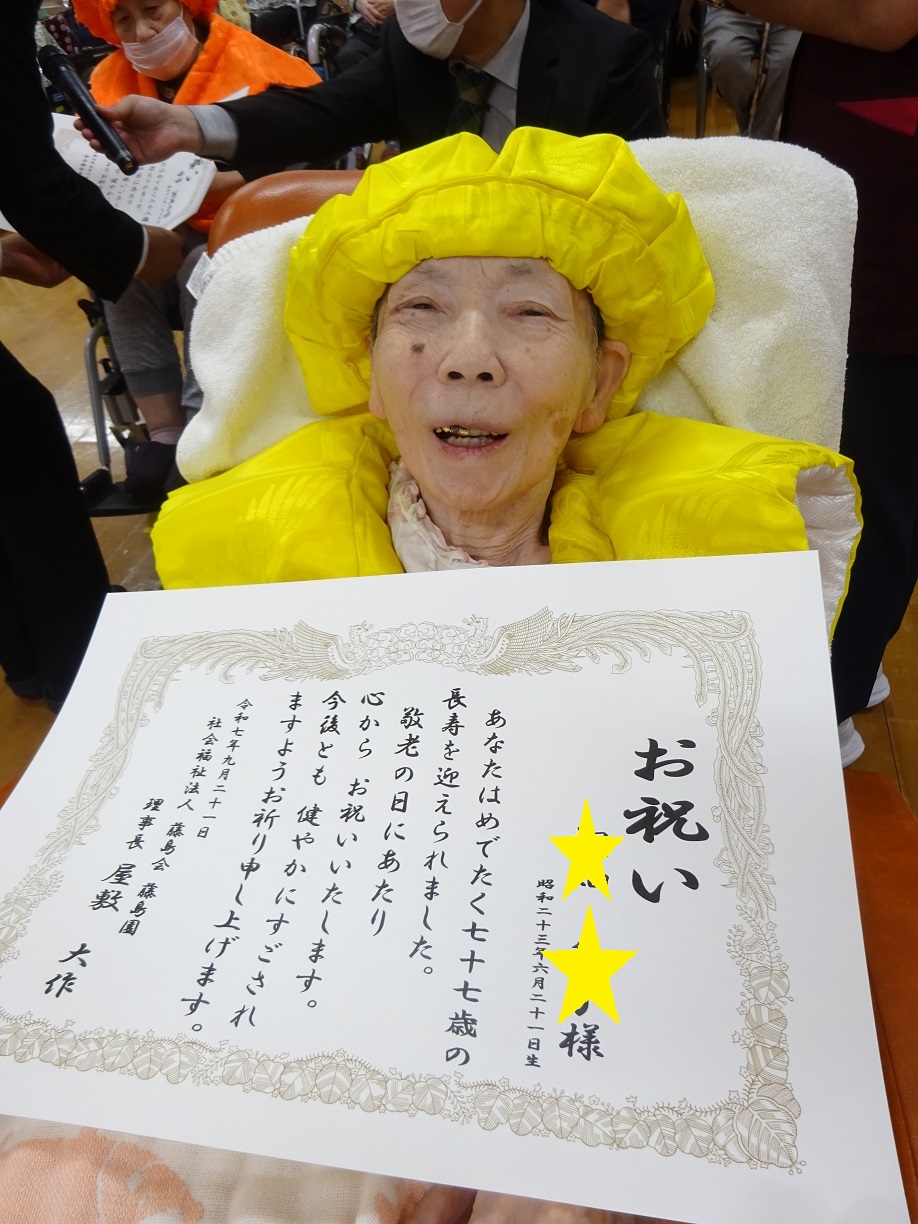 お祝い
様
昭和二十三年六月二十一日生
あなたはめでたく七十七歳の
長寿を迎えられました。
敬老の日にあたり
心から お祝いいたします。
今後とも 健やかにすごされ
ますようお祈り申し上げます。
令和七年九月二十一日
社会福祉法人 藤島会 藤島園
理事長 屋敷 大作